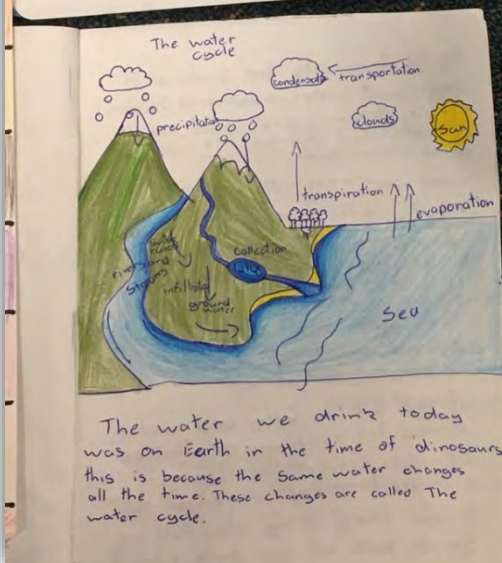 The water
cycle
condensation
transportation
clouds
Sun
precipitation
transpiration
evaporation
collection
rivers and
streams
ground
water
Sea
The water we drink today
was on Earth in the time of dinosaurs
this is because the same water changes
all the time. These changes are called The
water cycle.